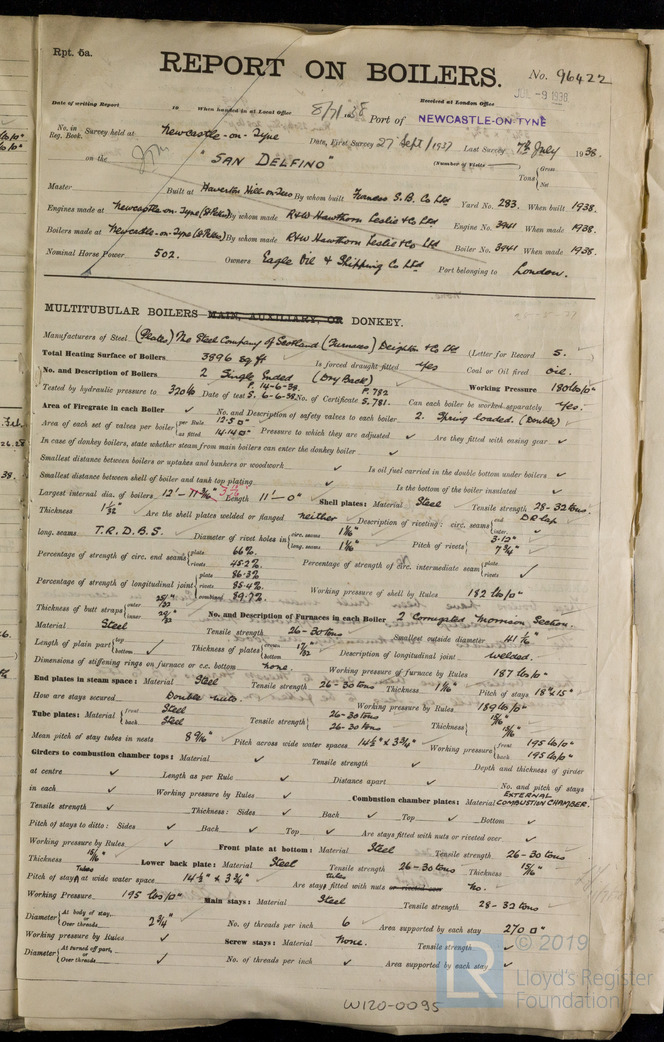 Rpt. 5a.
REPORT ON BOILERS.
No. 96422
JUL -9 1938
Date of writing Report 19 When handed in at Local Office 8/7/1938 Port of NEWCASTLE-ON-TYNE
Received at London Office
No. in Reg. Book. Survey held at Newcastle-on-Tyne Date, First Survey 27 Sept/1937 Last Survey 7th July 1938.
(Number of Visits)
on the "SAN DELFINO" Tons { Gross Net
Master Built at Haverton Hill-on-Tees By whom built Furness S.B. Co Ltd Yard No. 283. When built 1938.
Engines made at Newcastle-on-Tyne (St Peters) By whom made R&W Hawthorn Leslie & Co Ltd Engine No. 3941 When made 1938.
Boilers made at Newcastle-on-Tyne (St Peters) By whom made R&W Hawthorn Leslie & Co Ltd Boiler No. 3941 When made 1938.
Nominal Horse Power 502. Owners Eagle Oil & Shipping Co Ltd Port belonging to London.
MULTITUBULAR BOILERS MAIN, AUXILIARY, OR DONKEY.
Manufacturers of Steel (Plates) The Steel Company of Scotland (Furnaces) Deighton & Co Ltd (Letter for Record S.
Total Heating Surface of Boilers 3896 sq ft Is forced draught fitted Yes Coal or Oil fired Oil.
No. and Description of Boilers 2 Single Ended (Dry Back) Working Pressure 180 lbs/□"
Tested by hydraulic pressure to 320 lb Date of test P. 14-6-38. S. 6-6-38. No. of Certificate P. 782 S. 781. Can each boiler be worked separately Yes.
Area of Firegrate in each Boiler ✓ No. and Description of safety valves to each boiler 2. Spring Loaded. (Double)
Area of each set of valves per boiler { per Rule 12.5 □" as fitted 14.14 □" Pressure to which they are adjusted ✓ Are they fitted with easing gear ✓
In case of donkey boilers, state whether steam from main boilers can enter the donkey boiler ✓
Smallest distance between boilers or uptakes and bunkers or woodwork ✓ Is oil fuel carried in the double bottom under boilers ✓
Smallest distance between shell of boiler and tank top plating ✓ Is the bottom of the boiler insulated ✓
Largest internal dia. of boilers 12'-11 3/16" Length 11'-0" Shell plates: Material Steel Tensile strength 28-32 tons.
Thickness 1 1/32" Are the shell plates welded or flanged neither Description of riveting: circ. seams { end DR lap inter. ✓
long. seams T.R.D.B.S. Diameter of rivet holes in { circ. seams 1 1/16" long. seams 1 1/16" Pitch of rivets { 3.12" 7 3/4"
Percentage of strength of circ. end seams { plate 66%. rivets 45.2%. Percentage of strength of circ. intermediate seam { plate rivets ✓
Percentage of strength of longitudinal joint { plate 86.3% rivets 85.4%. combined 89.7% Working pressure of shell by Rules 182 lb/□"
Thickness of butt straps { outer 25/32" inner 29/32" No. and Description of Furnaces in each Boiler 2 Corrugated Morrison Section.
Material Steel Tensile strength 26-30 tons Smallest outside diameter
Length of plain part { top bottom ✓ Thickness of plates { crown bottom 17/32" Description of longitudinal joint welded.
Dimensions of stiffening rings on furnace or c.c. bottom none. Working pressure of furnace by Rules 187 lbs/□"
End plates in steam space: Material Steel Tensile strength 26-30 tons Thickness 1 1/16" Pitch of stays 18" x 15"
How are stays secured Double nuts. Working pressure by Rules 189 lb/□"
Tube plates: Material { front Steel back Steel Tensile strength { 26-30 tons 26-30 tons Thickness { 15/16" 15/16"
Mean pitch of stay tubes in nests 8 9/16" Pitch across wide water spaces 14 1/2" x 3 3/4" Working pressure { front 195 lb/□" back 195 lb/□"
Girders to combustion chamber tops: Material ✓ Tensile strength ✓ Depth and thickness of girder
at centre ✓ Length as per Rule ✓ Distance apart ✓ No. and pitch of stays
in each ✓ Working pressure by Rules ✓ Combustion chamber plates: Material EXTERNAL COMBUSTION CHAMBER.
Tensile strength ✓ Thickness: Sides ✓ Back ✓ Top ✓ Bottom ✓
Pitch of stays to ditto: Sides ✓ Back ✓ Top ✓ Are stays fitted with nuts or riveted over ✓
Working pressure by Rules ✓ Front plate at bottom: Material Steel Tensile strength 26-30 tons
Thickness 15/16" Lower back plate: Material Steel Tensile strength 26-30 tons Thickness 15/16"
Pitch of stay Tubes at wide water space 14 1/2" x 3 3/4" Are stay tubes fitted with nuts or riveted over No.
Working Pressure 195 lbs/□" Main stays: Material Steel Tensile strength 28-32 tons
Diameter { At body of stay, or Over threads 2 3/4" No. of threads per inch 6 Area supported by each stay 270 □"
Working pressure by Rules ✓ Screw stays: Material None. Tensile strength ✓
Diameter { At turned off part, or Over threads ✓ No. of threads per inch ✓ Area supported by each stay ✓
W120-0095
LR
© 2019
Lloyd's Register
Foundation